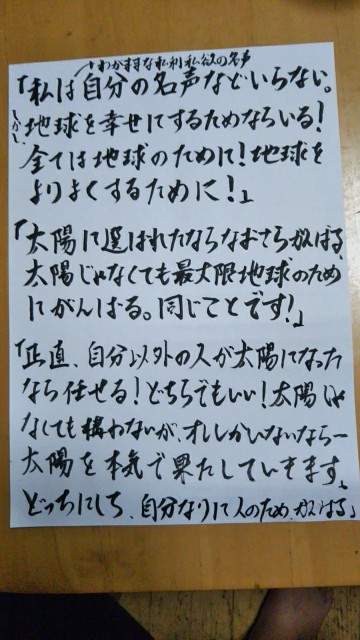 +わがままな私利私欲の名声
「私は自分の名声などいらない。
しかし、地球を幸せにするためならいる!
全ては地球のために!地球を
よりよくするために!」
「太陽に選ばれたならなおさらがんばる、
太陽じゃなくても最大限地球のため
にがんばる。同じことです!」
「正直、自分以外の人が太陽になった
なら任せる!どちらでもいい!太陽じゃ
なくても構わないが、オレしかいないなら一
太陽を本気で果たしていきます。
どっちにしろ、自分なりに人のため、がんばる」